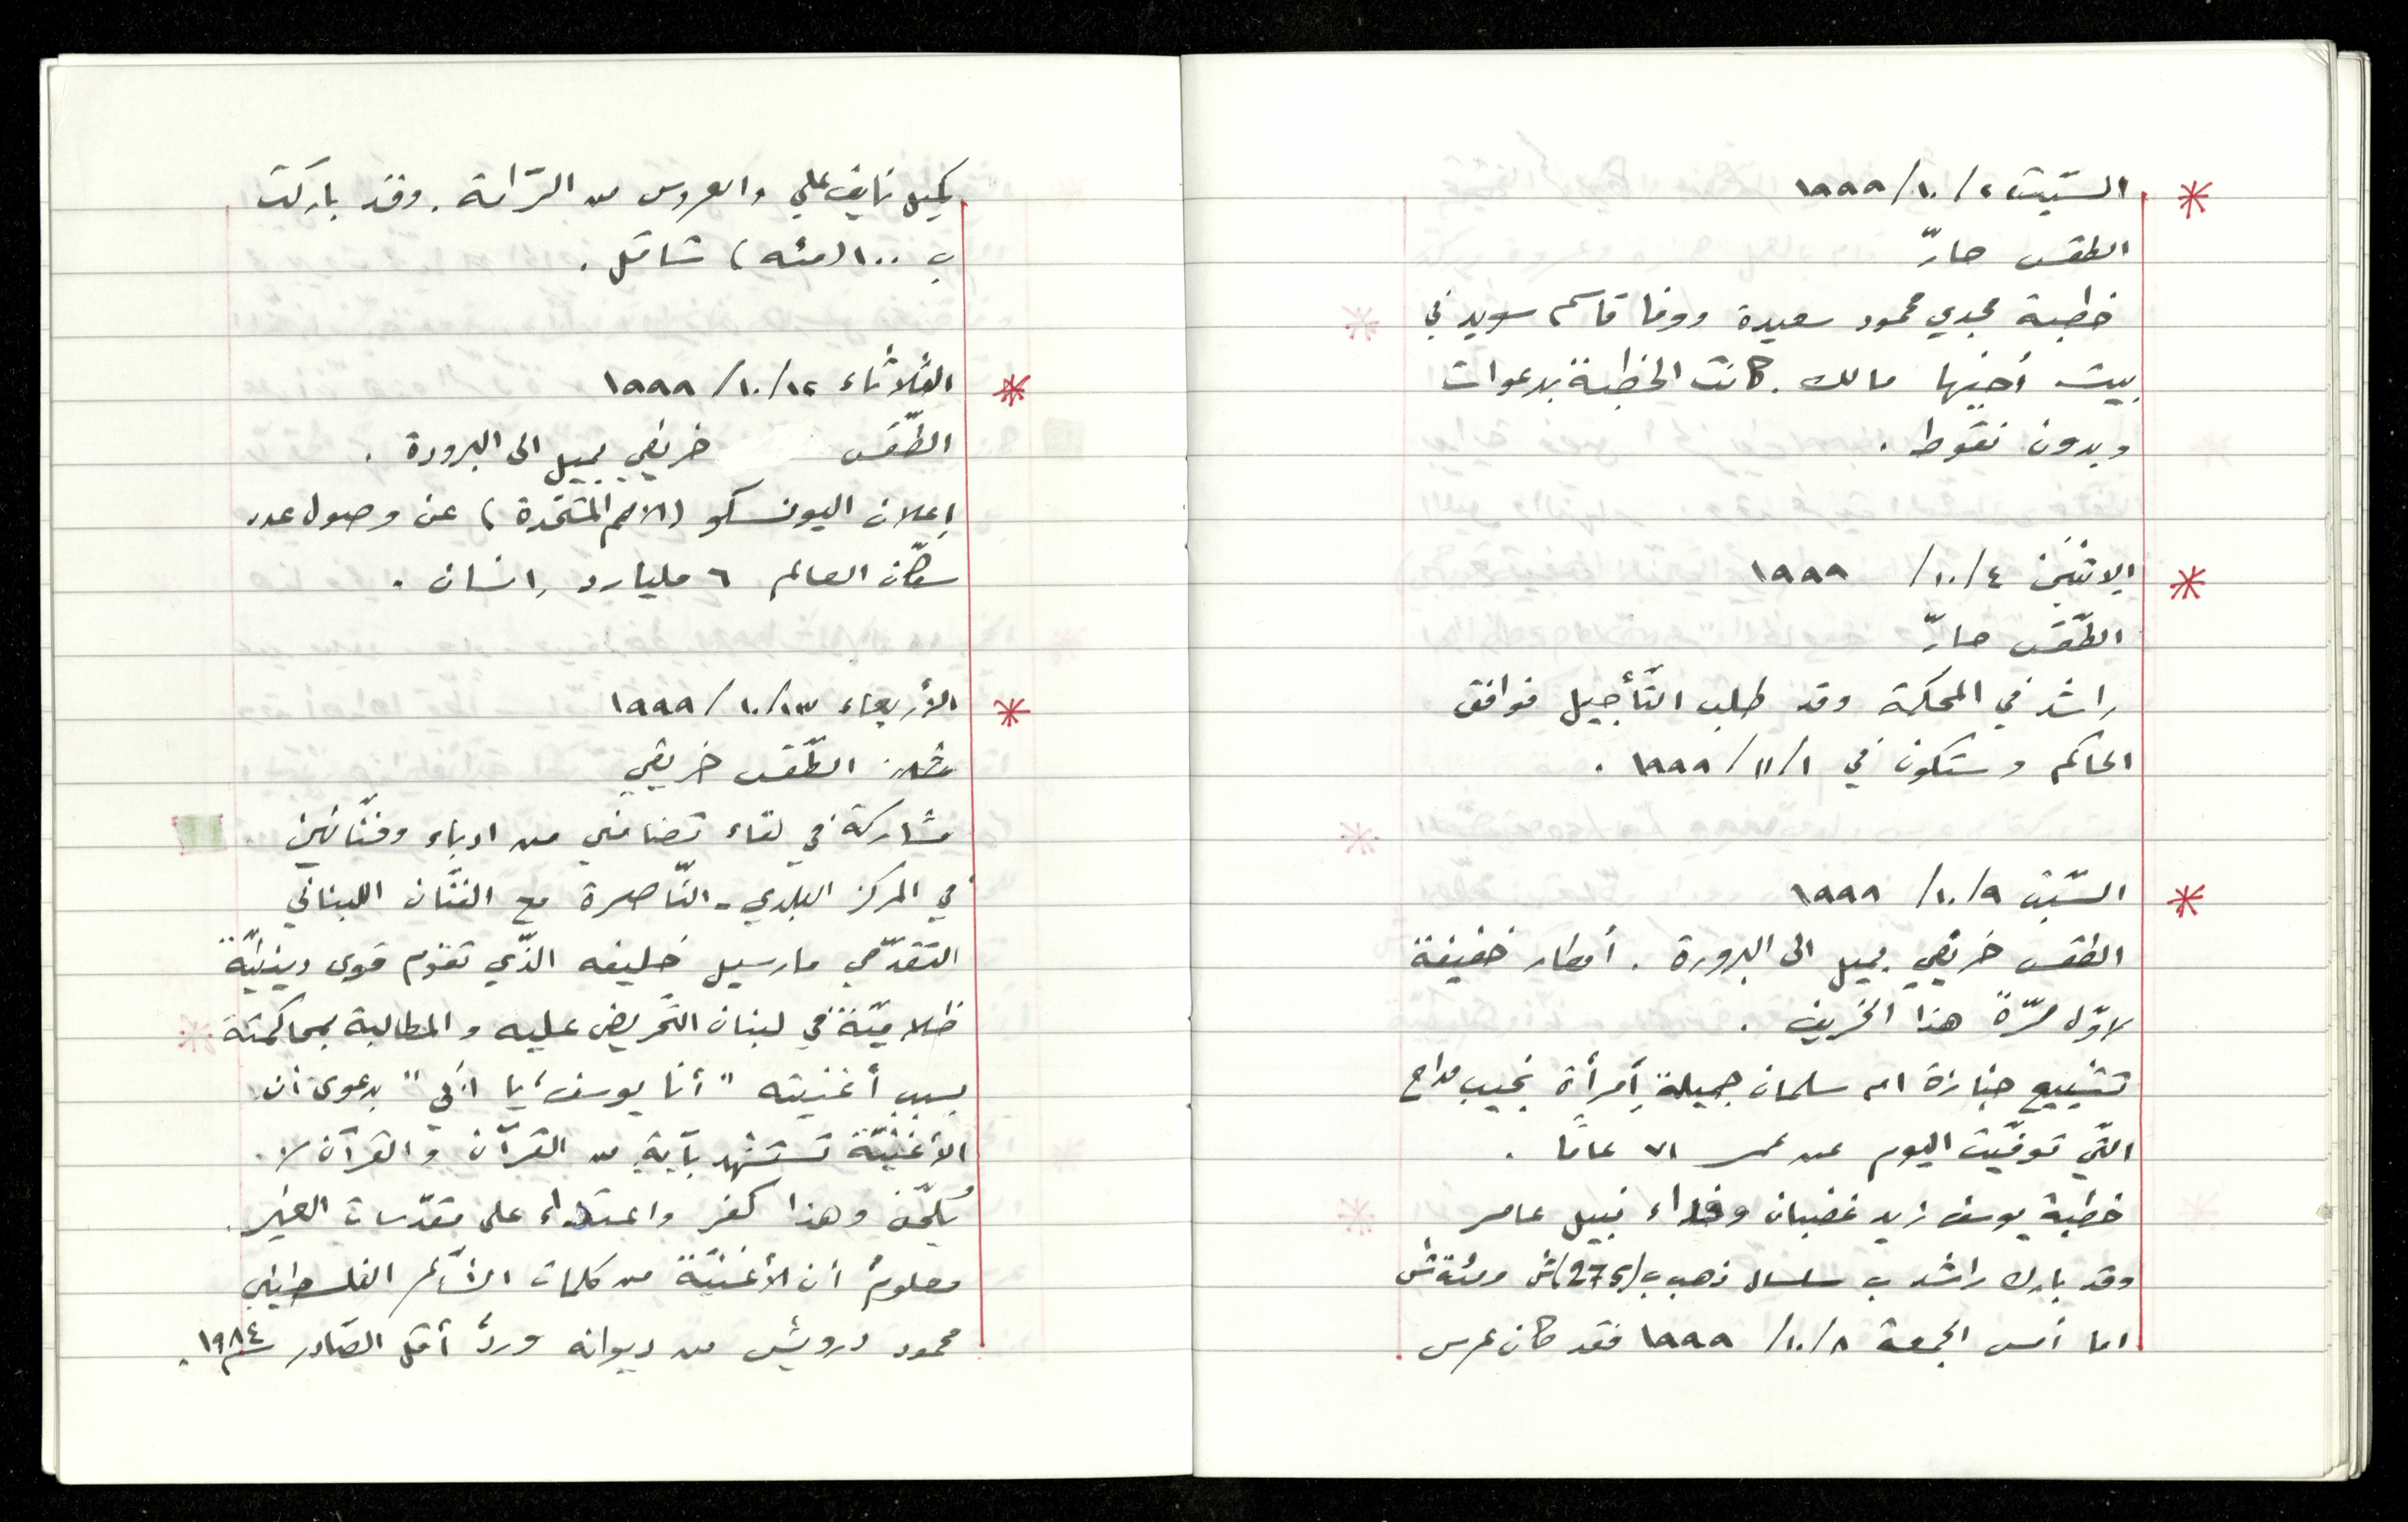 * السّبت ٢/١٠/١٩٩٩
الطقس حارّ
خطبة مجدي محمود سعيدة ووفا قاسم سويد في
بيت أخيها مالك. كانت الخطبة بدعوات
وبدون نقوط.
* الاثنين ٤/١٠/١٩٩٩
الطّقس حارّ
راشد في المحكمة وقد طلب التّأجيل فوافق
الحاكم وستكون في ١/١١/١٩٩٩.
* السّبت ٩/١٠/١٩٩٩
الطقس خريفي يميل الى البرورة. أمطار خفيفة
لاوّل مرّة هذا الخريف.
تشييع جنازة ام سلمان جميلة إمرأة نجيب مداح
التّي توفّيت اليوم عن عمر ٧١ عامًا.
خطبة يوسف زيد غضبان وفداء نبيل عامر
وقد بارك راشد ب سلسال ذهب ب(275)ش ومئة ش
اما أمس الجمعة ٨/١٠/١٩٩٩ فقد كان عرس
كميل نايف علي والعروس من الرّامة. وقد باركت
ب ١٠٠(مئه) شاقل.
* الثلاثاء ١٢/١٠/١٩٩٩
الطّقس خريفي يميل الى البرودة.
إعلان اليونسكو (الامم المتّحدة) عن وصول عدد
سكّان العالم ٦ مليارد إنسان.
* الأربعاء ١٣/١٠/١٩٩٩
الطّقس خريفي
مشاركة في لقاء تضامني من ادباء وفنّانين
في المركز البلدي - النّاصرة مع الفنّان اللبناني
التقدّمي مارسيل خليفه الذّي تقوم قوى دينيّة
ظلاميّة في لبنان التّحريض عليه والمطالبة بمحاكمته
بسبب أغنيته "أنا يوسف، يا ابي" بدعوى أن
الأغنيّة تستشهد بآية من القرآن والقرآن لا
يُلحّن وهذا كفر واعتداء على مقدّسات الغير.
معلومٌ أن الأغنيّة من كلمات الشّاعر الفلسطيني
محمود درويش من ديوانه وردٌ أقل الصّادر سنة ١٩٨٤.